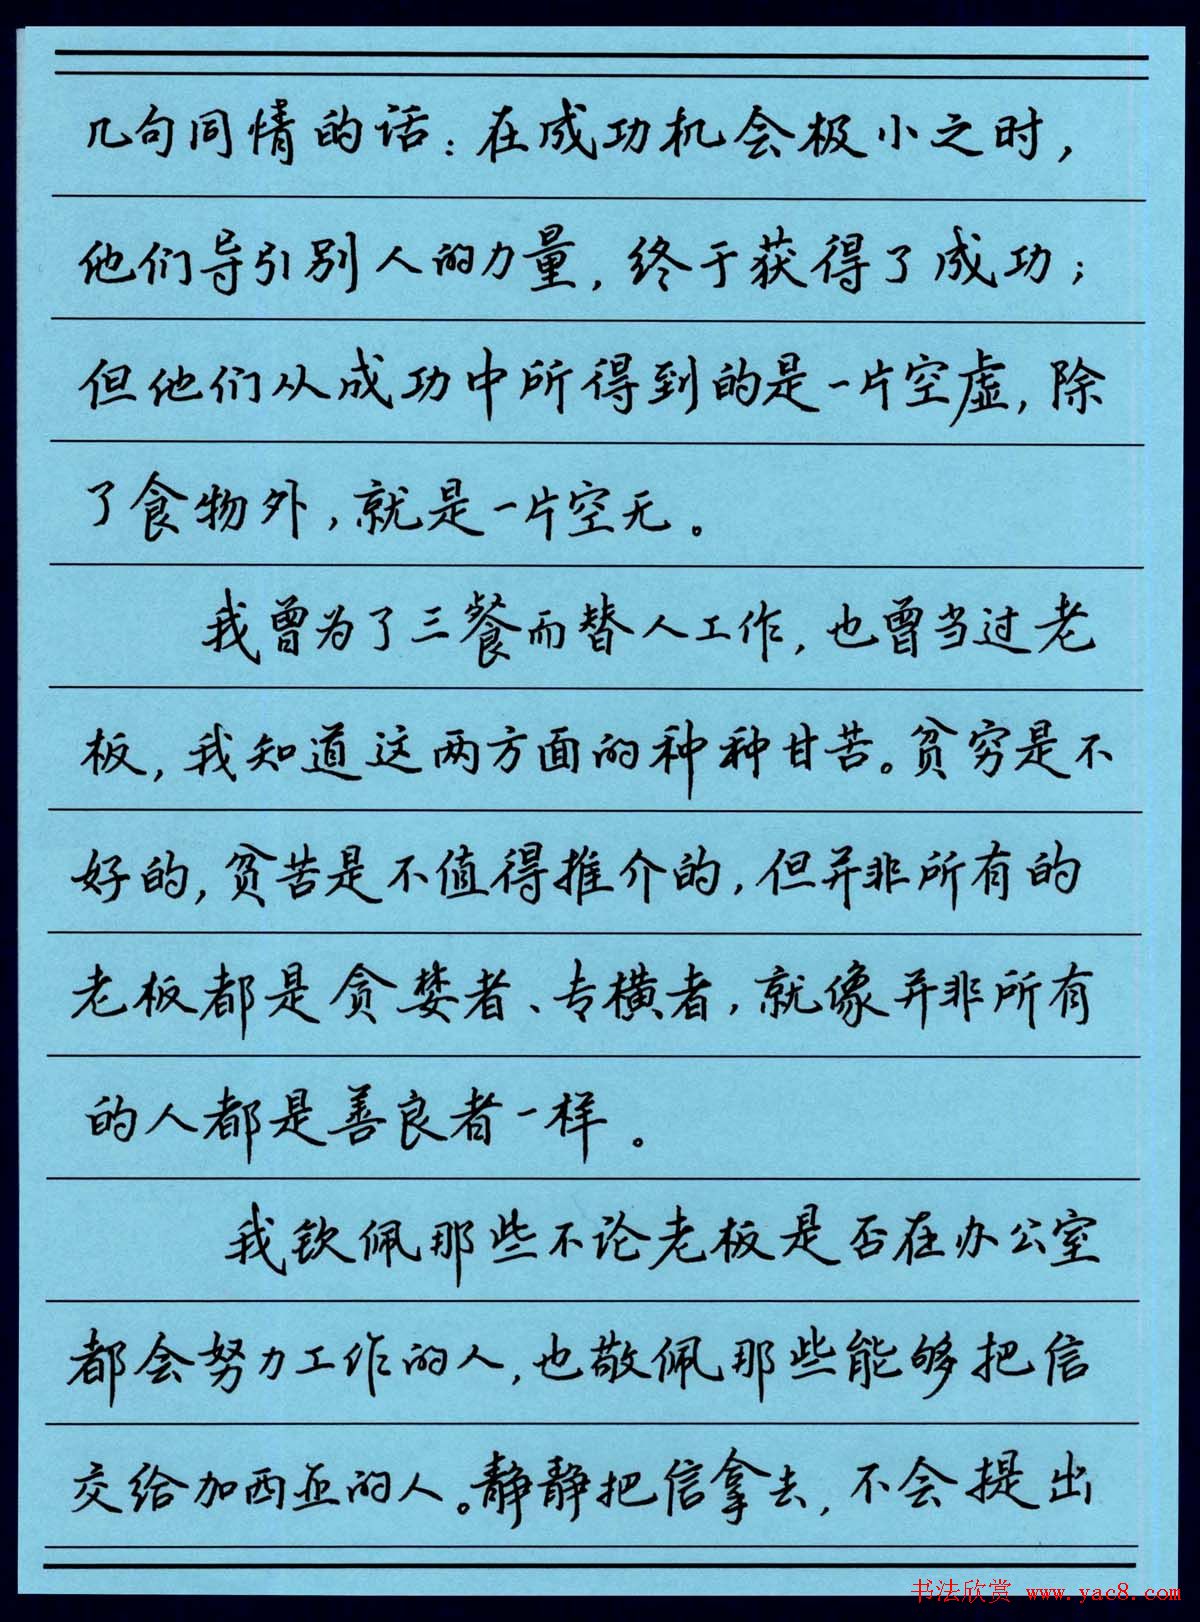 几句同情的话：在成功机会极小之时，
他们导引别人的力量，终于获得了成功；
但他们从成功中所得到的是一片空虚，除
了食物外，就是一片空无。
我曾为了三餐而替人工作，也曾当过老
板，我知道这两方面的种种甘苦。贫穷是不
好的，贫苦是不值得推介的，但并非所有的
老板都是贪婪者、专横者，就像并非所有
的人都是善良者一样。
我钦佩那些不论老板是否在办公室
都会努力工作的人，也敬佩那些能够把信
交给加西亚的人。静静把信拿去，不会提出
书法欣赏 www.yac8.com